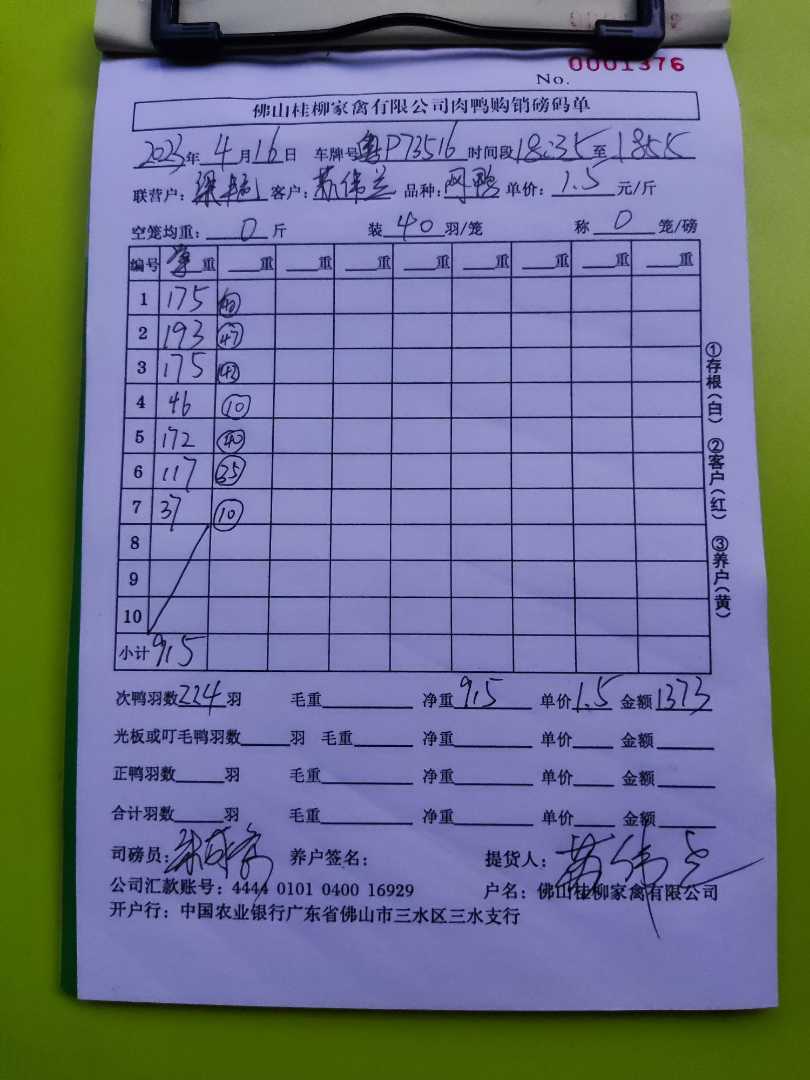 No. 0001376
佛山桂柳家禽有限公司肉鸭购销磅码单
2023年 4月16日 车牌号粤P73516 时间段18:35至1855
联营户: 客户:苏伟 品种: 鸭 单价: 1.5 元/斤
空笼均重: 0 斤 装 40 羽/笼 称 0 笼/磅
编号 重 重 重 重 重 重 重 重 重
1 175
2 193 47
3 175 42
4 46 10
5 172 40
6 117 35
7 37 10
8
9
10
小计 915
次鸭羽数224羽 毛重 净重 915 单价1.5 金额1373
光板或叮毛鸭羽数 羽 毛重 净重 单价 金额
正鸭羽数 羽 毛重 净重 单价 金额
合计羽数 羽 毛重 净重 单价 金额
司磅员: 养户签名: 提货人: 苏伟
公司汇款账号: 4444 0101 0400 16929 户名: 佛山桂柳家禽有限公司
开户行: 中国农业银行广东省佛山市三水区三水支行
①存根(白) ②客户(红) ③养户(黄)